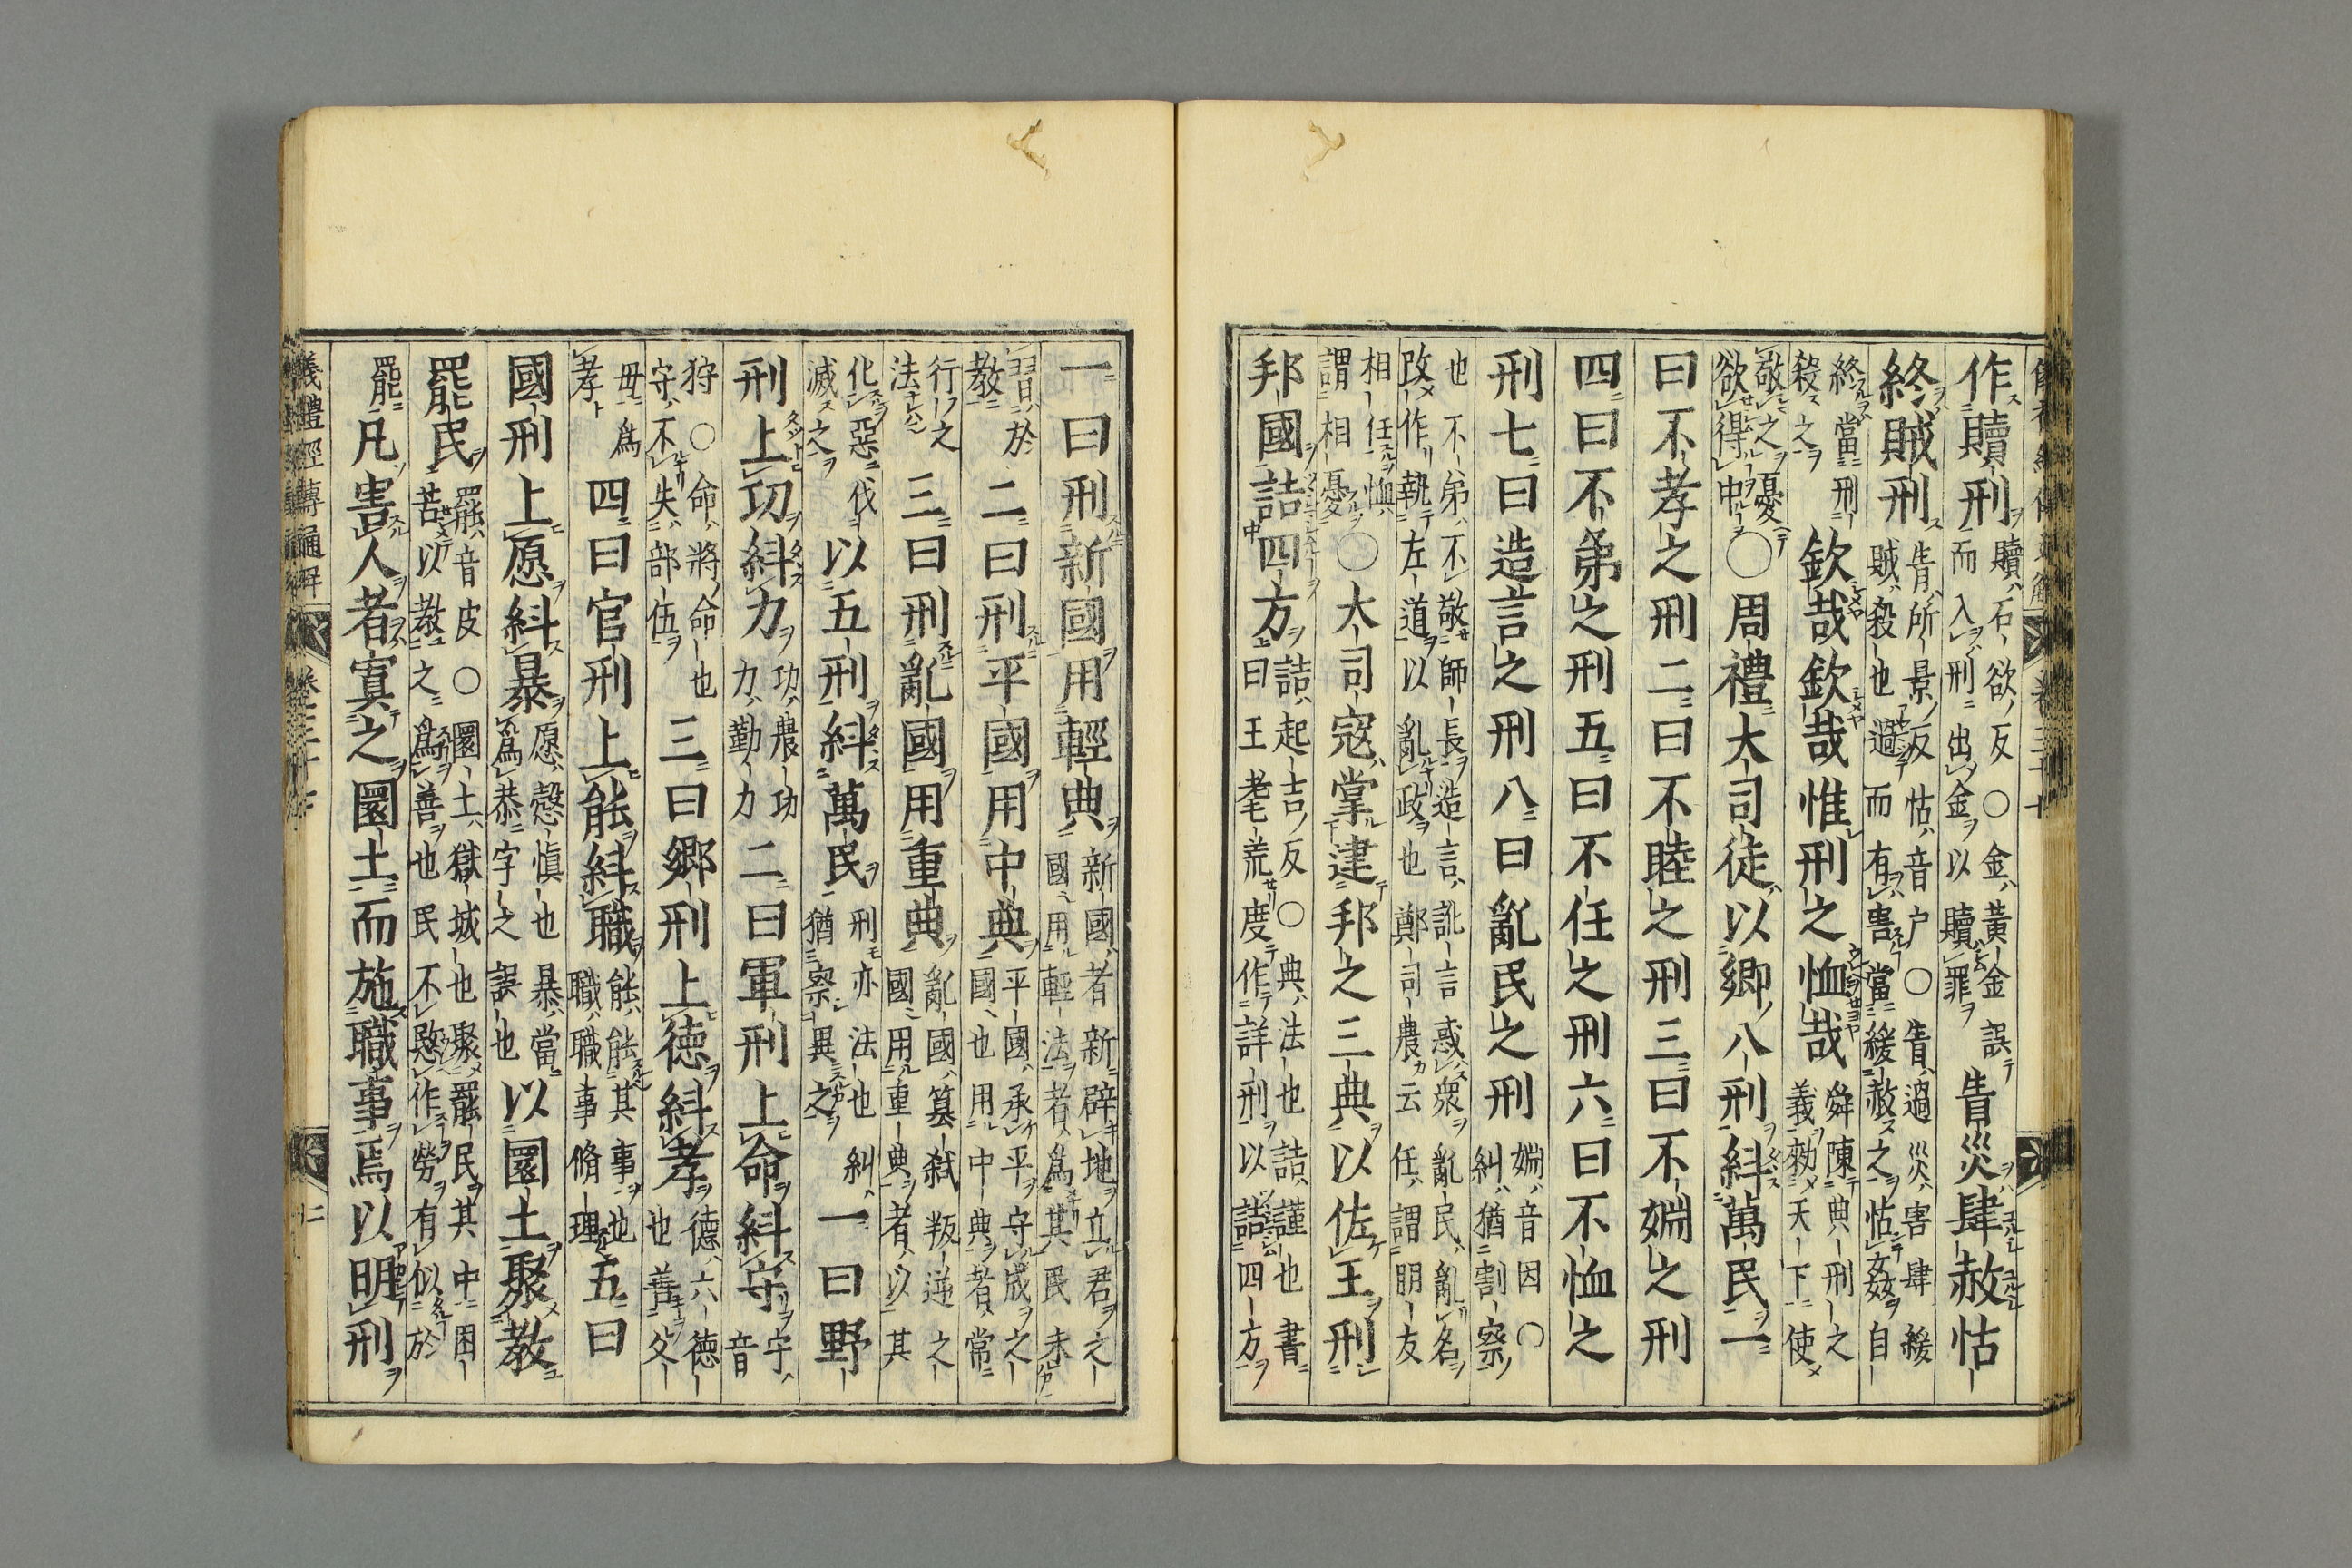 作贖刑贖石欲反○金黃金誤而入刑出金以贖罪眚災肆赦怙
終賊刑眚所景反怙音户○眚過災害肆緩賊殺也過而有害當緩赦之怙姦自
終當刑殺之欽哉欽哉惟刑之恤哉舜陳典刑之義勑天下使
敬之憂欲得中○周禮大司徒以鄉八刑糾萬民一
曰不孝之刑二曰不睦之刑三曰不婣之刑
四曰不弟之刑五曰不任之刑六曰不恤之
刑七曰造言之刑八曰亂民之刑婣音因○糾猶割察
也不弟不敬師長造言訛言惑衆亂民亂名改作執左道以亂政也鄭司農云任謂朋友
相任恤謂相憂○大司寇掌建邦之三典以佐王刑
邦國詰四方詰起吉反○典法也詰謹也書曰王耄荒度作詳刑以詰四方
一曰刑新國用輕典新國者新辟地立君之國用輕法者為其民未
習於教二曰刑平國用中典平國承平守成之國也用中典者常
行之法三曰刑亂國用重典亂國篡弑叛逆之國用重典者以其
化惡伐滅之以五刑糾萬民刑亦法也糾猶察異之一曰野
刑上功糾力功農功力勤力二曰軍刑上命糾守守音
狩○命將命也守不失部伍三曰鄉刑上德糾孝德六德也善父
母為孝四曰官刑上能糾職能能其事也職職事脩理五曰
國刑上愿糾暴愿愨慎也暴當為恭字之誤也以圜土聚教
罷民罷音皮○圜土獄城也聚罷民其中困苦以教之為善也民不愍作勞有似於
罷凡害人者寘之圜土而施職事焉以明刑
儀禮經傳通解